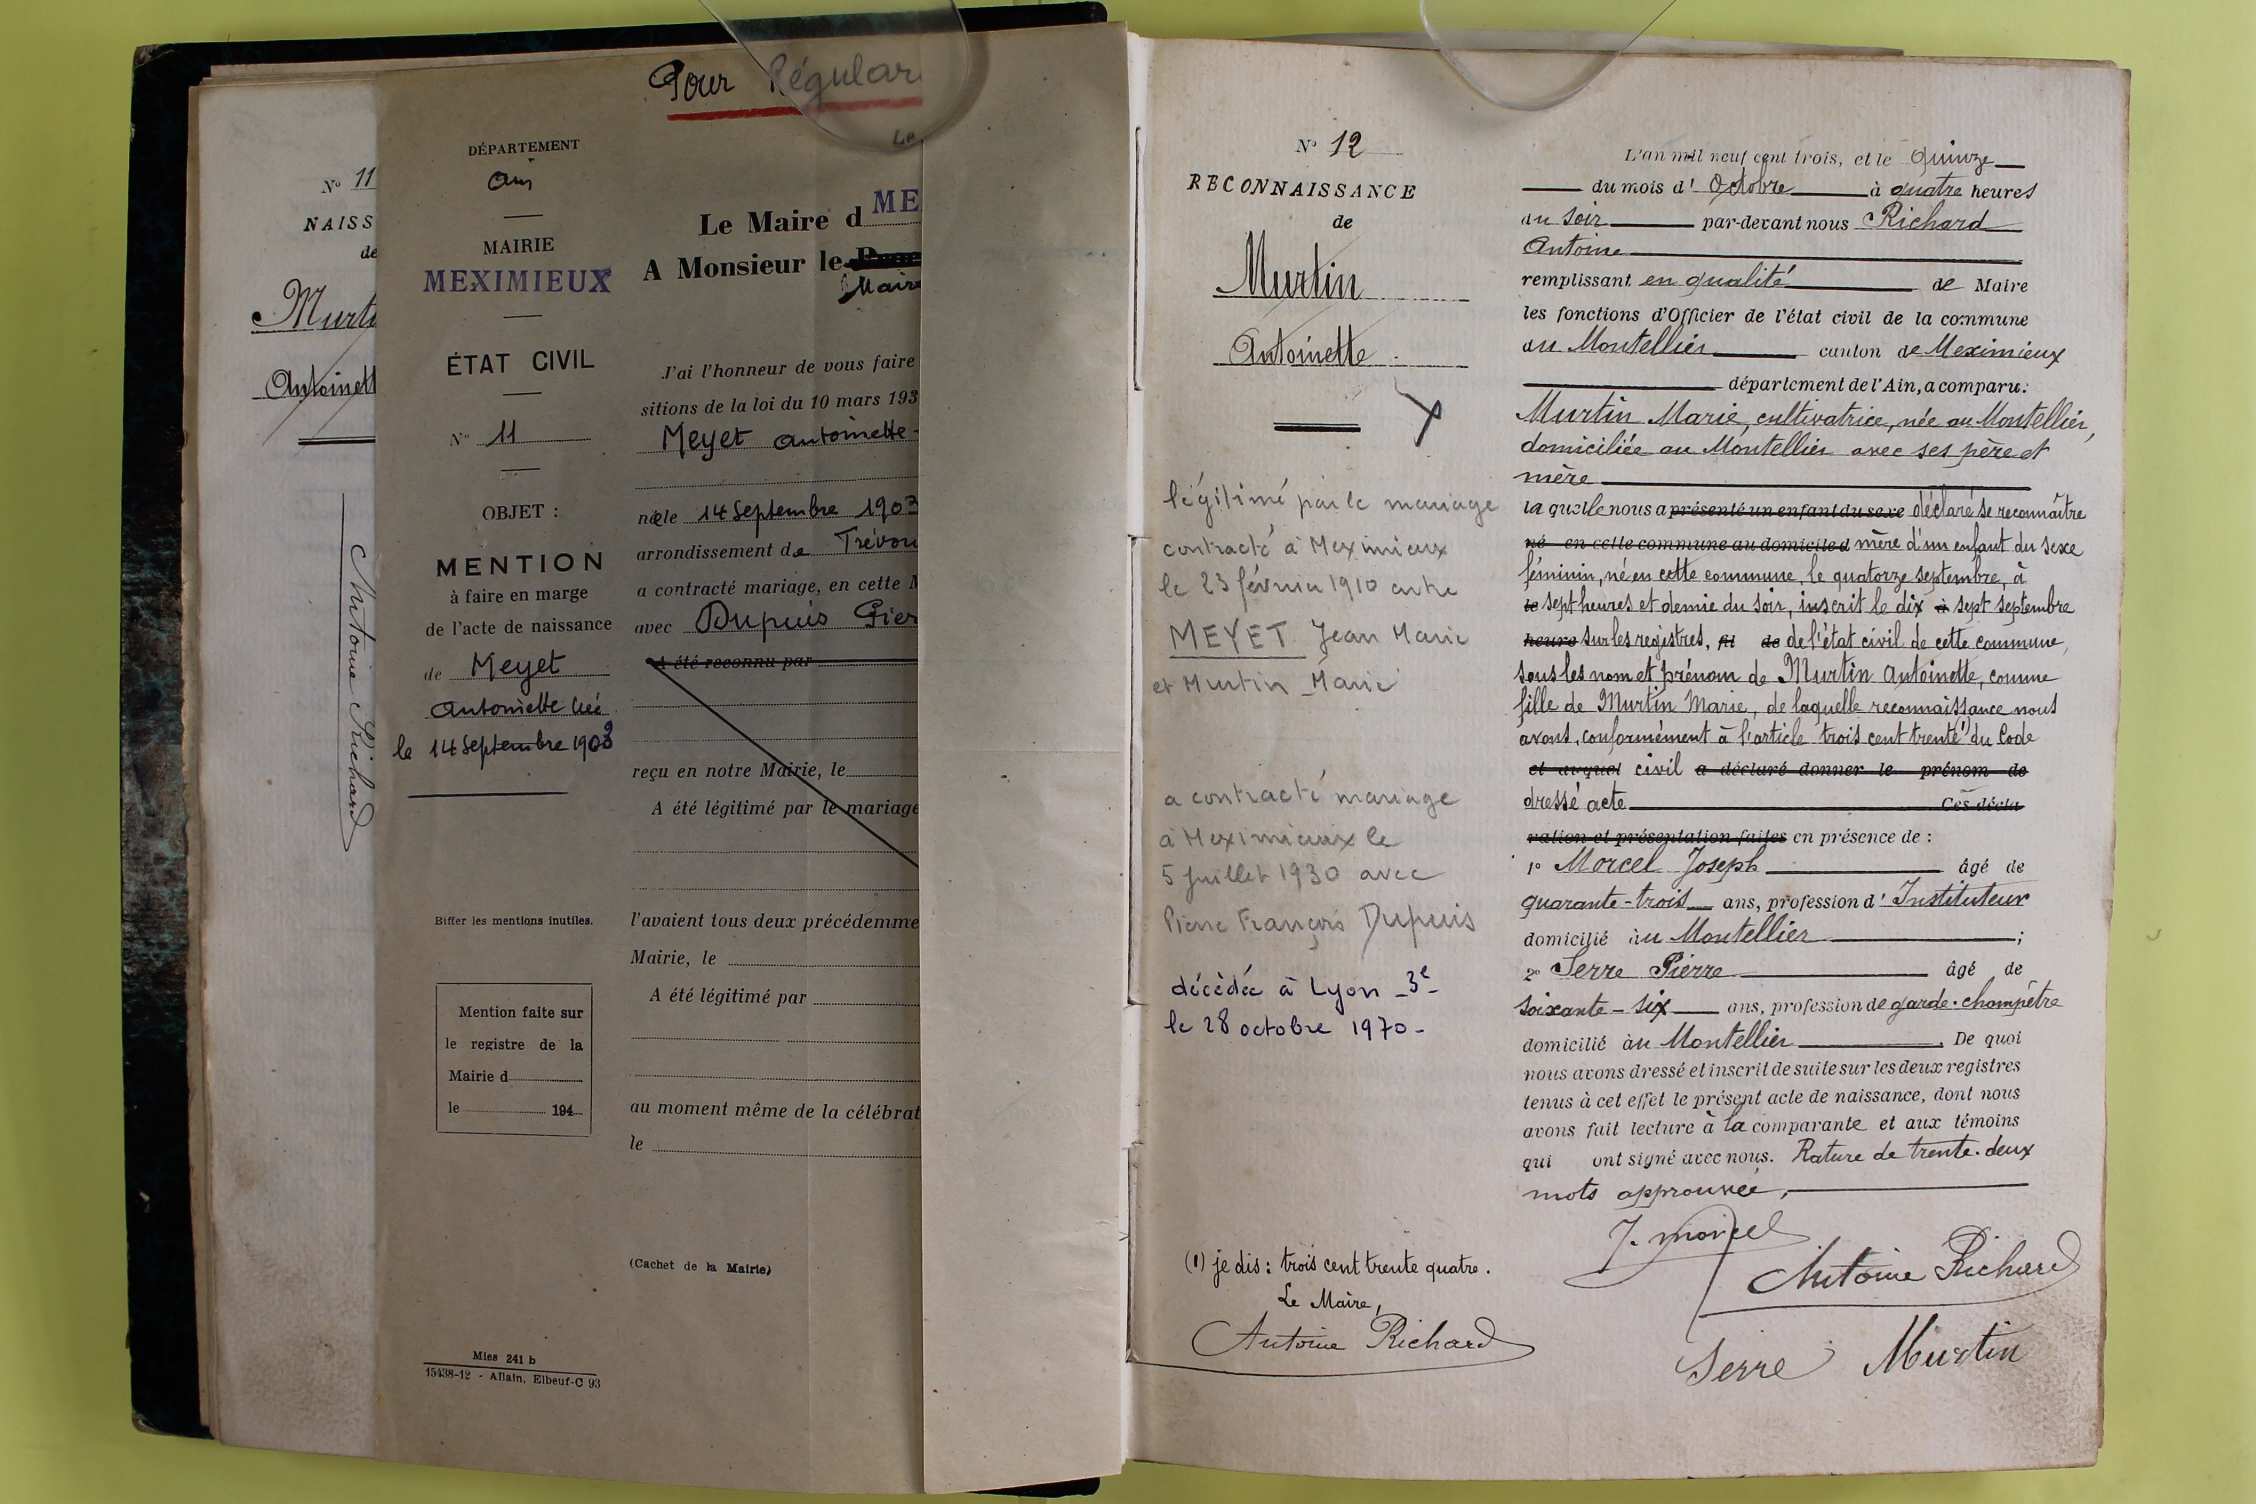 N° 11
NAISS
de
Murti
Antoinett
Antoine Richard
Pour Régular
Le
DÉPARTEMENT
Ain
MAIRIE
MEXIMIEUX
ÉTAT CIVIL
N° 11
OBJET :
MENTION
à faire en marge
de l'acte de naissance
de Meyet
Antoinette née
le 14 septembre 1903
Biffer les mentions inutiles.
Mention faite sur
le registre de la
Mairie d
le 194
Mies 241 b
15438-12 - Allain, Elbeuf-C 93
Le Maire d ME
A Monsieur le
Maire
J'ai l'honneur de vous faire
sitions de la loi du 10 mars 193
Meyet Antoinette
née le 14 Septembre 1903
arrondissement de Trévou
a contracté mariage, en cette M
avec Dupuis Pier
A été reconnu par
reçu en notre Mairie, le
A été légitimé par le mariage
l'avaient tous deux précédemme
Mairie, le
A été légitimé par
au moment même de la célébrat
le
(Cachet de la Mairie)
N° 12
RECONNAISSANCE
de
Murtin
Antoinette
légitimé par le mariage
contracté à Meximieux
le 23 février 1910 entre
MEYET Jean Marie
et Murtin Marie
a contracté mariage
à Meximieux le
5 Juillet 1930 avec
Pierre François Dupuis
décédée à Lyon -3e-
le 28 octobre 1970-
(1) je dis : trois cent trente quatre.
Le Maire,
Antoine Richard
L'an mil neuf cent trois, et le quinze
du mois d'Octobre à quatre heures
du soir par-devant nous Richard
Antoine
remplissant en qualité de Maire
les fonctions d'Officier de l'état civil de la commune
du Montellier canton de Meximieux
département de l'Ain, a comparu:
Murtin Marie, cultivatrice, née au Montellier,
domiciliée au Montellier avec ses père et
mère
laquelle nous a présenté un enfant du sexe déclaré se reconnaître
né en cette commune au domicile d mère d'un enfant du sexe
féminin, né en cette commune, le quatorze septembre, à
le sept heures et demie du soir, inscrit le dix à sept septembre
heure sur les registres, fil de de l'état civil de cette commune,
sous les nom et prénom de Murtin Antoinette, comme
fille de Murtin Marie, de laquelle reconnaissance nous
avons, conformément à l'article trois cent trente (1) du Code
et auquel civil a déclaré donner le prénom de
dressé acte Ces décla
ration et présentation faites en présence de :
1° Morcel Joseph âgé de
quarante-trois ans, profession d'Instituteur
domicilié au Montellier ;
2° Serre Pierre âgé de
soixante-six ans, profession de garde-champêtre
domicilié au Montellier. De quoi
nous avons dressé et inscrit de suite sur les deux registres
tenus à cet effet le présent acte de naissance, dont nous
avons fait lecture à la comparante et aux témoins
qui ont signé avec nous. Rature de trente-deux
mots approuvée,
J. Morcel
Antoine Richard
Serre Murtin